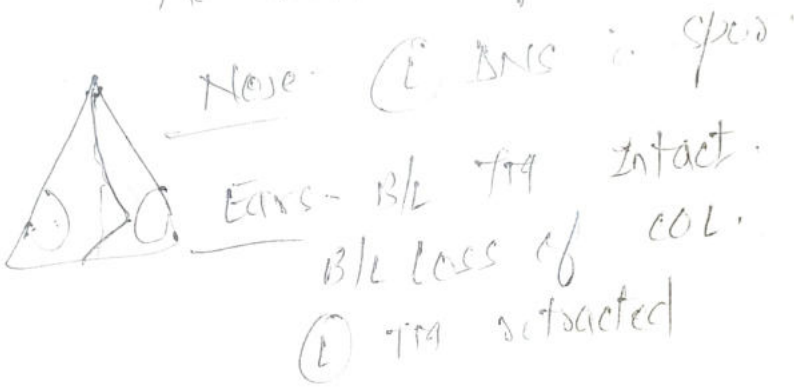 Nose- Ⓛ DNS c spur.
Ears- B/L TM Intact.
B/L loss of COL.
Ⓛ TM retracted